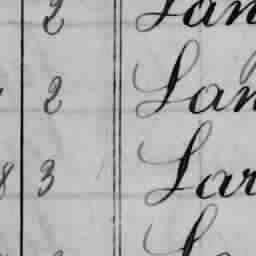 2 Lan
2 Lan
8 3 Lar